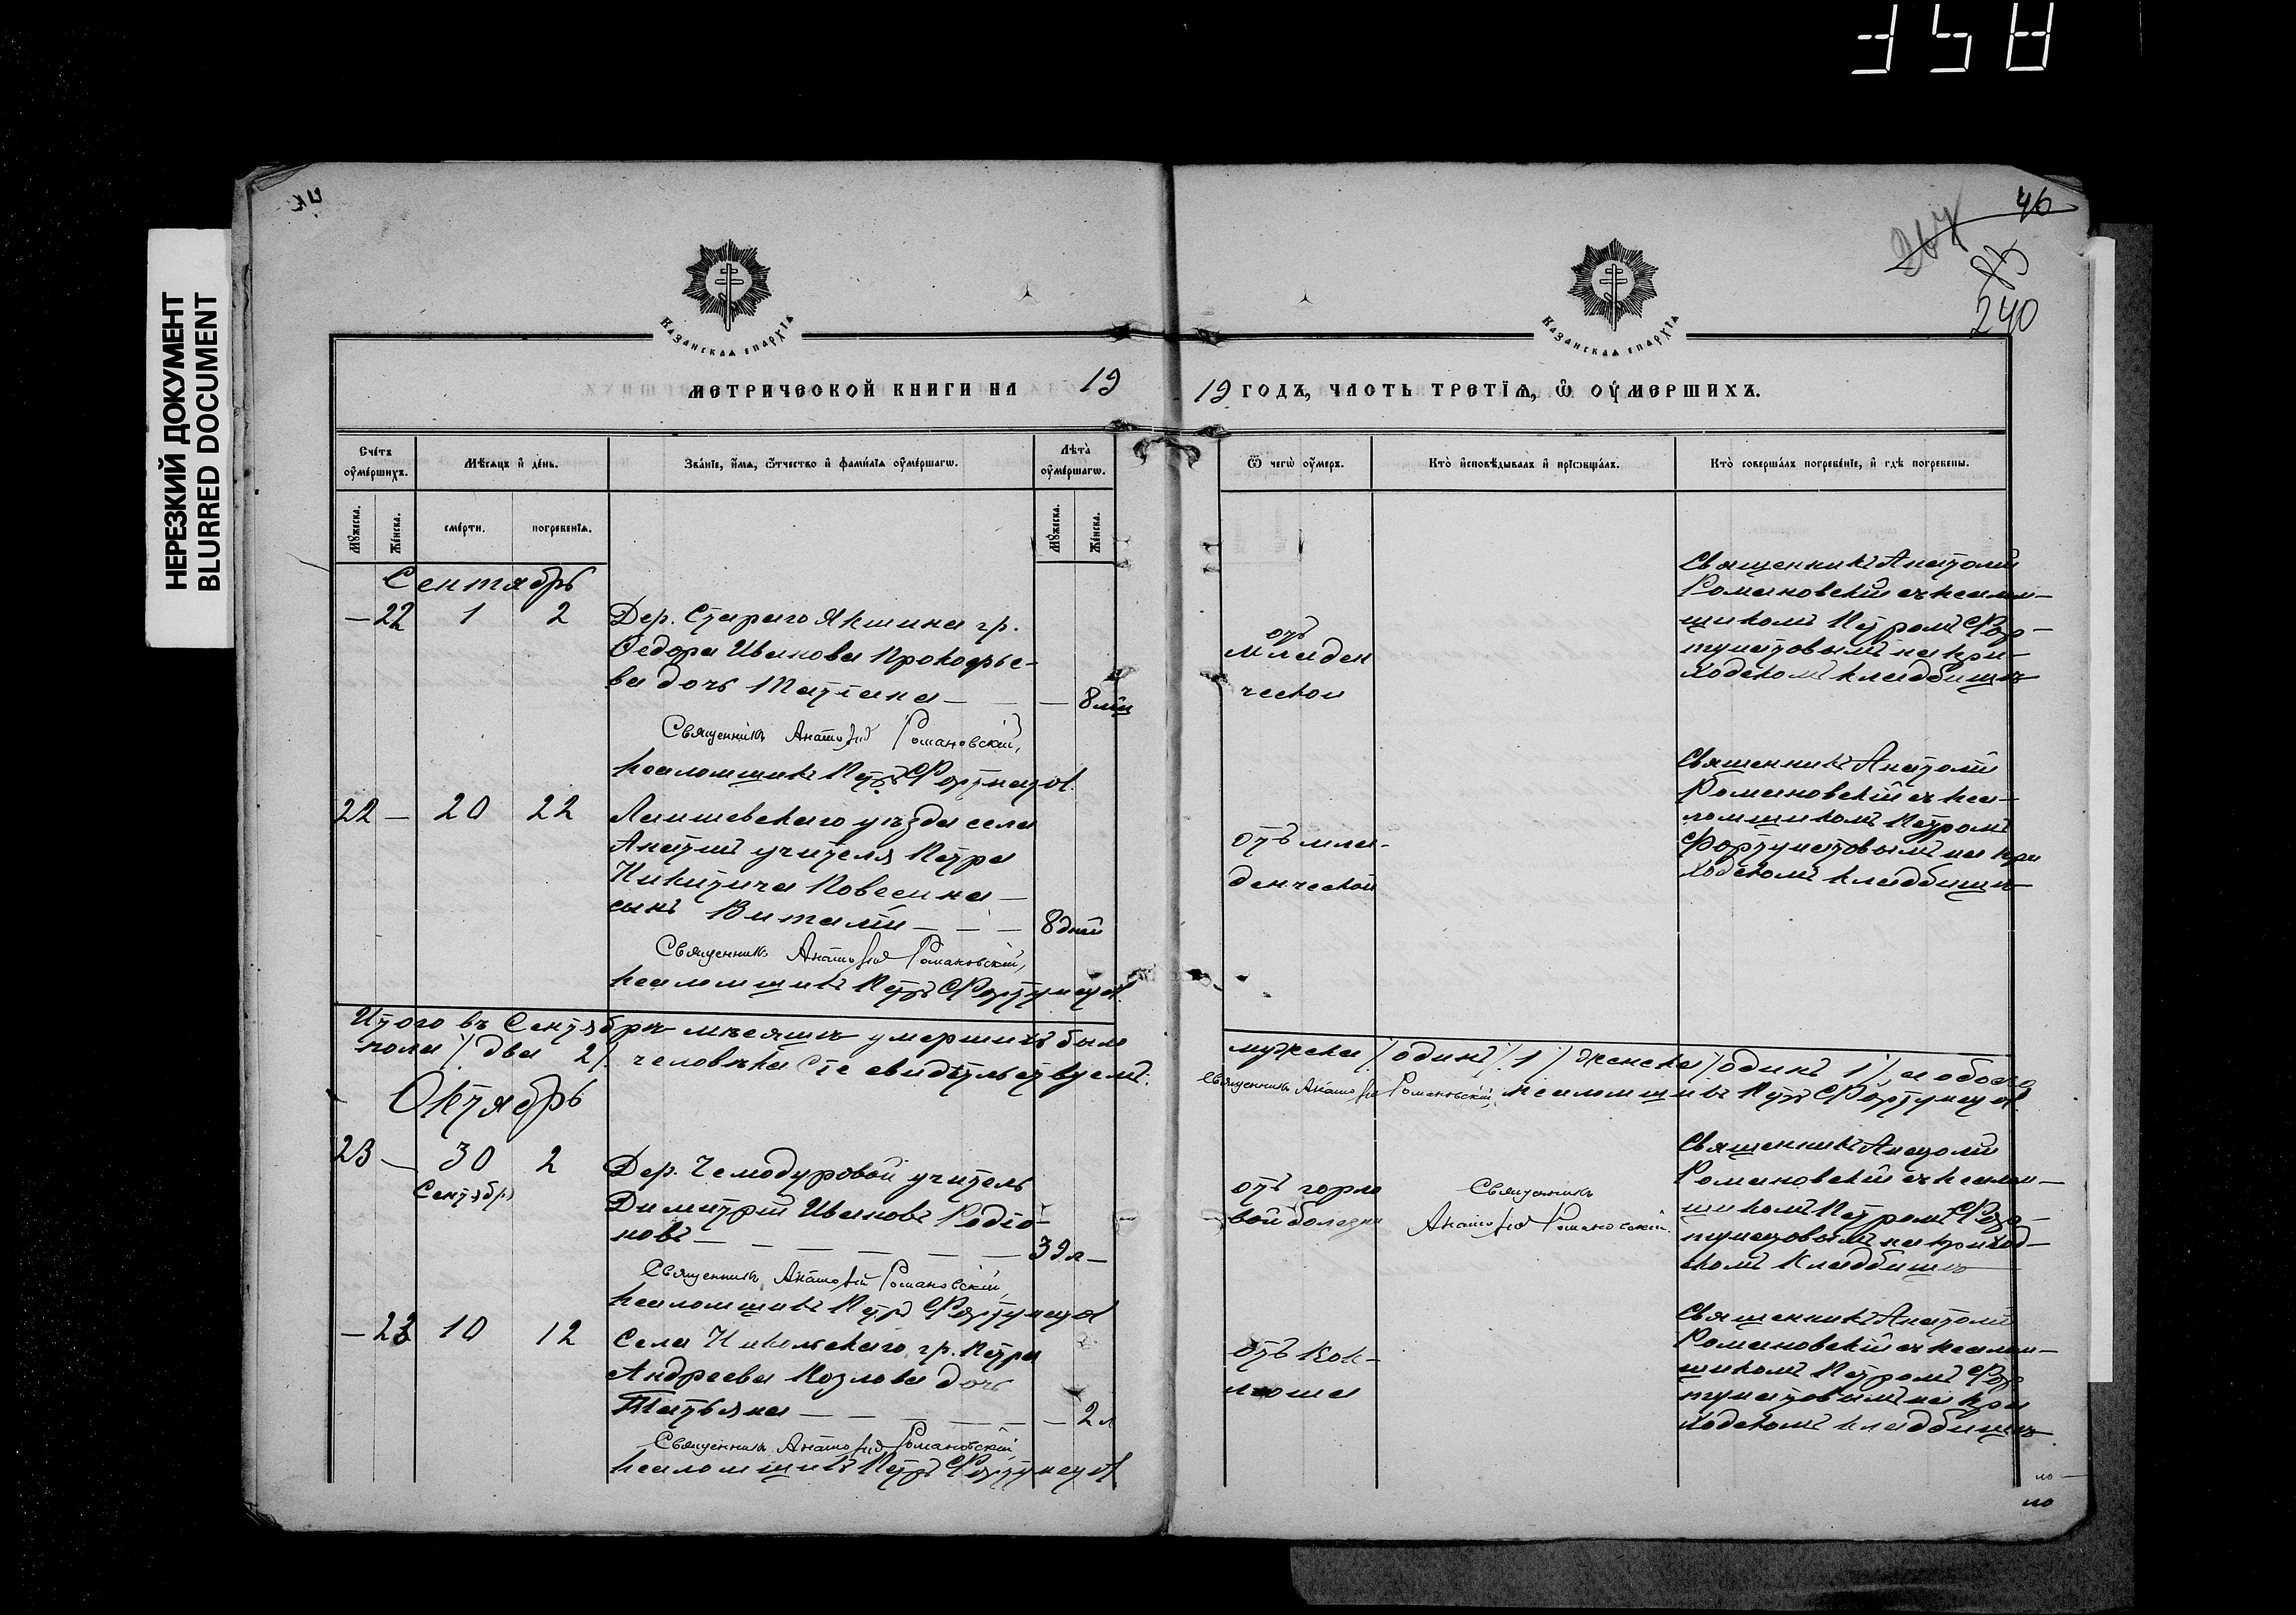 358
НЕРЕЗКИЙ ДОКУМЕНТ
BLURRED DOCUMENT
46
267
240
КАЗАНСКАЯ ЕПАРХІЯ
КАЗАНСКАЯ ЕПАРХІЯ
МЕТРИЧЕСКОЙ КНИГИ НА 19
19 ГОДЪ, ЧАСТЬ ТРЕТІѦ, Ѿ ОУМЕРШИХЪ.
Счетъ оумершихъ.
Мѣсяцъ и день.
Званіе, имя, отчество и фамилія оумершагѡ.
Лѣта оумершагѡ.
Ѿ чегѡ оумеръ.
Кто исповѣдывалъ и пріобщалъ.
Кто совершалъ погребеніе, и гдѣ погребены.
Мужеска.
Женска.
смерти.
погребенія.
Мужеска.
Женска.
Сентябрь
— 22 1 2
Дер. Стараго Якшина гр.
Ѳедора Иванова Прокофье-
ва дочь Татіана — — — 8
Священникъ Анатолій Романовскій,
псаломщикъ Петръ Фортунатов.
отъ
младен
ческой
Священникъ Анатолій
Романовскій съ псалом-
щикомъ Петромъ Фор-
тунатовымъ на при-
ходскомъ кладбищѣ
22 — 20 22
Лаишевскаго уѣзда села
учителя Петра
Никитича
сынъ Виталій — — — 8 дней
Священникъ Анатолій Романовскій,
псаломщикъ Петръ Фортунатов.
отъ мла-
денческой
Священникъ Анатолій
Романовскій съ пса-
ломщикомъ Петромъ
Фортунатовымъ на при
ходскомъ кладбищѣ
Итого въ Сентябрѣ мѣсяцѣ умершихъ было
мужска /одинъ/ 1/ женска /одинъ 1/, а обоего
пола / два 2/. человѣка Сіе свидѣтельствуемъ.
Священникъ Анатолій Романовскій, псаломщикъ Петръ Фортунатов.
Октябрь
23 — 30 2
Сентябр
Дер. Чемодуровой учитель
Димитрій Ивановъ Родіо-
новъ — — — — — — 39 л —
Священникъ Анатолій Романовскій,
псаломщикъ Петръ Фортунатов
отъ горло
вой болезни
Священникъ
Анатолій Романовскій.
Священникъ Анатолій
Романовскій съ псалом-
щикомъ Петромъ Фор-
тунатовымъ на приход-
скомъ кладбищѣ
— 23 10 12
Села Никольскаго, гр. Петра
Андреева Козлова дочь
Татьяна — — — — — — 2 л
Священникъ Анатолій Романовскій
псаломщикъ Петръ Фортунатов
отъ кок-
люша
Священникъ Анатолій
Романовскій съ псалом-
щикомъ Петромъ Фор
тунатовымъ на при
ходскомъ кладбищѣ.